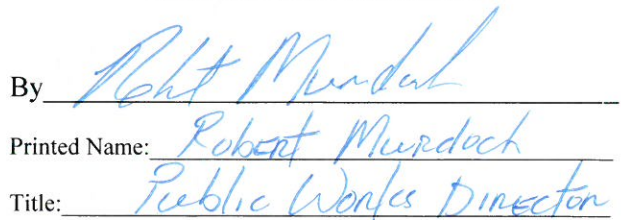 By Robert Murdoch
Printed Name: Robert Murdoch
Title: Public Works Director